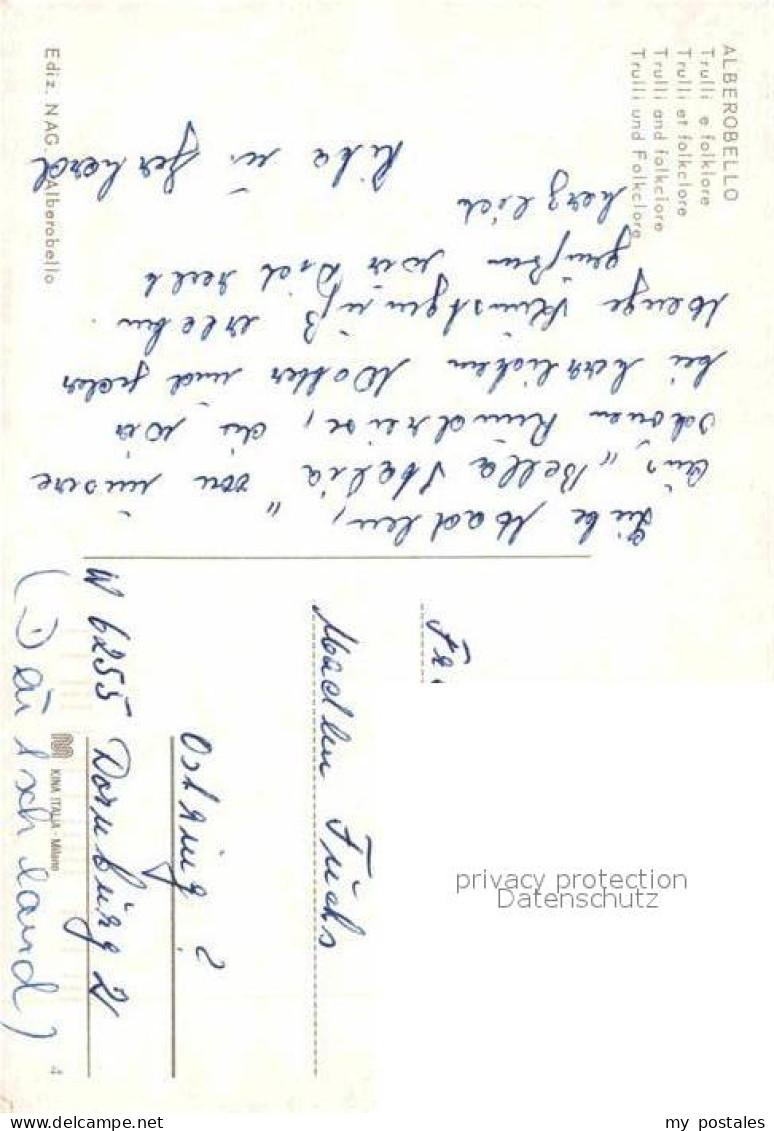 ALBEROBELLO
Trulli e folklore
Trulli et folkclore
Trulli and folkclore
Trulli und Folkclore
Ediz. NAG. Alberobello
Liebe Madlen,
aus „Bella Italia" von unsere
schönen Rundreise, die wir
bei herrlichem Wetter und jeder
Menge Kunstgenuß erleben.
grüßen wir Dich recht
herzlich
Rika u. Gerhard
Fr
Madlen Fuchs
Ostring 2
W 6255 Dornburg 2
(Deutschland)
KINA ITALIA - Milano
4
privacy protection
Datenschutz
my postales